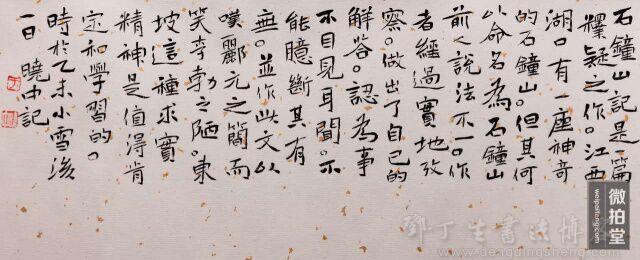 石鐘山記是一篇
釋疑之作。江西
湖口有一座神奇
的石鐘山。但其何
以命名為石鐘山
前人說法不一。作
者經過實地攷
察。做出了自己的
解答。認為事
不目見耳聞。不
能臆斷其有
無。並作此文以
嘆酈元之簡而
笑李勃之陋。東
坡這種求實
精神是值得肯
定和學習的。
時於乙未小雪後
一日曉中記
微拍堂
weipaitang.com
鄧丁生書法博
www.dengdingsheng.com